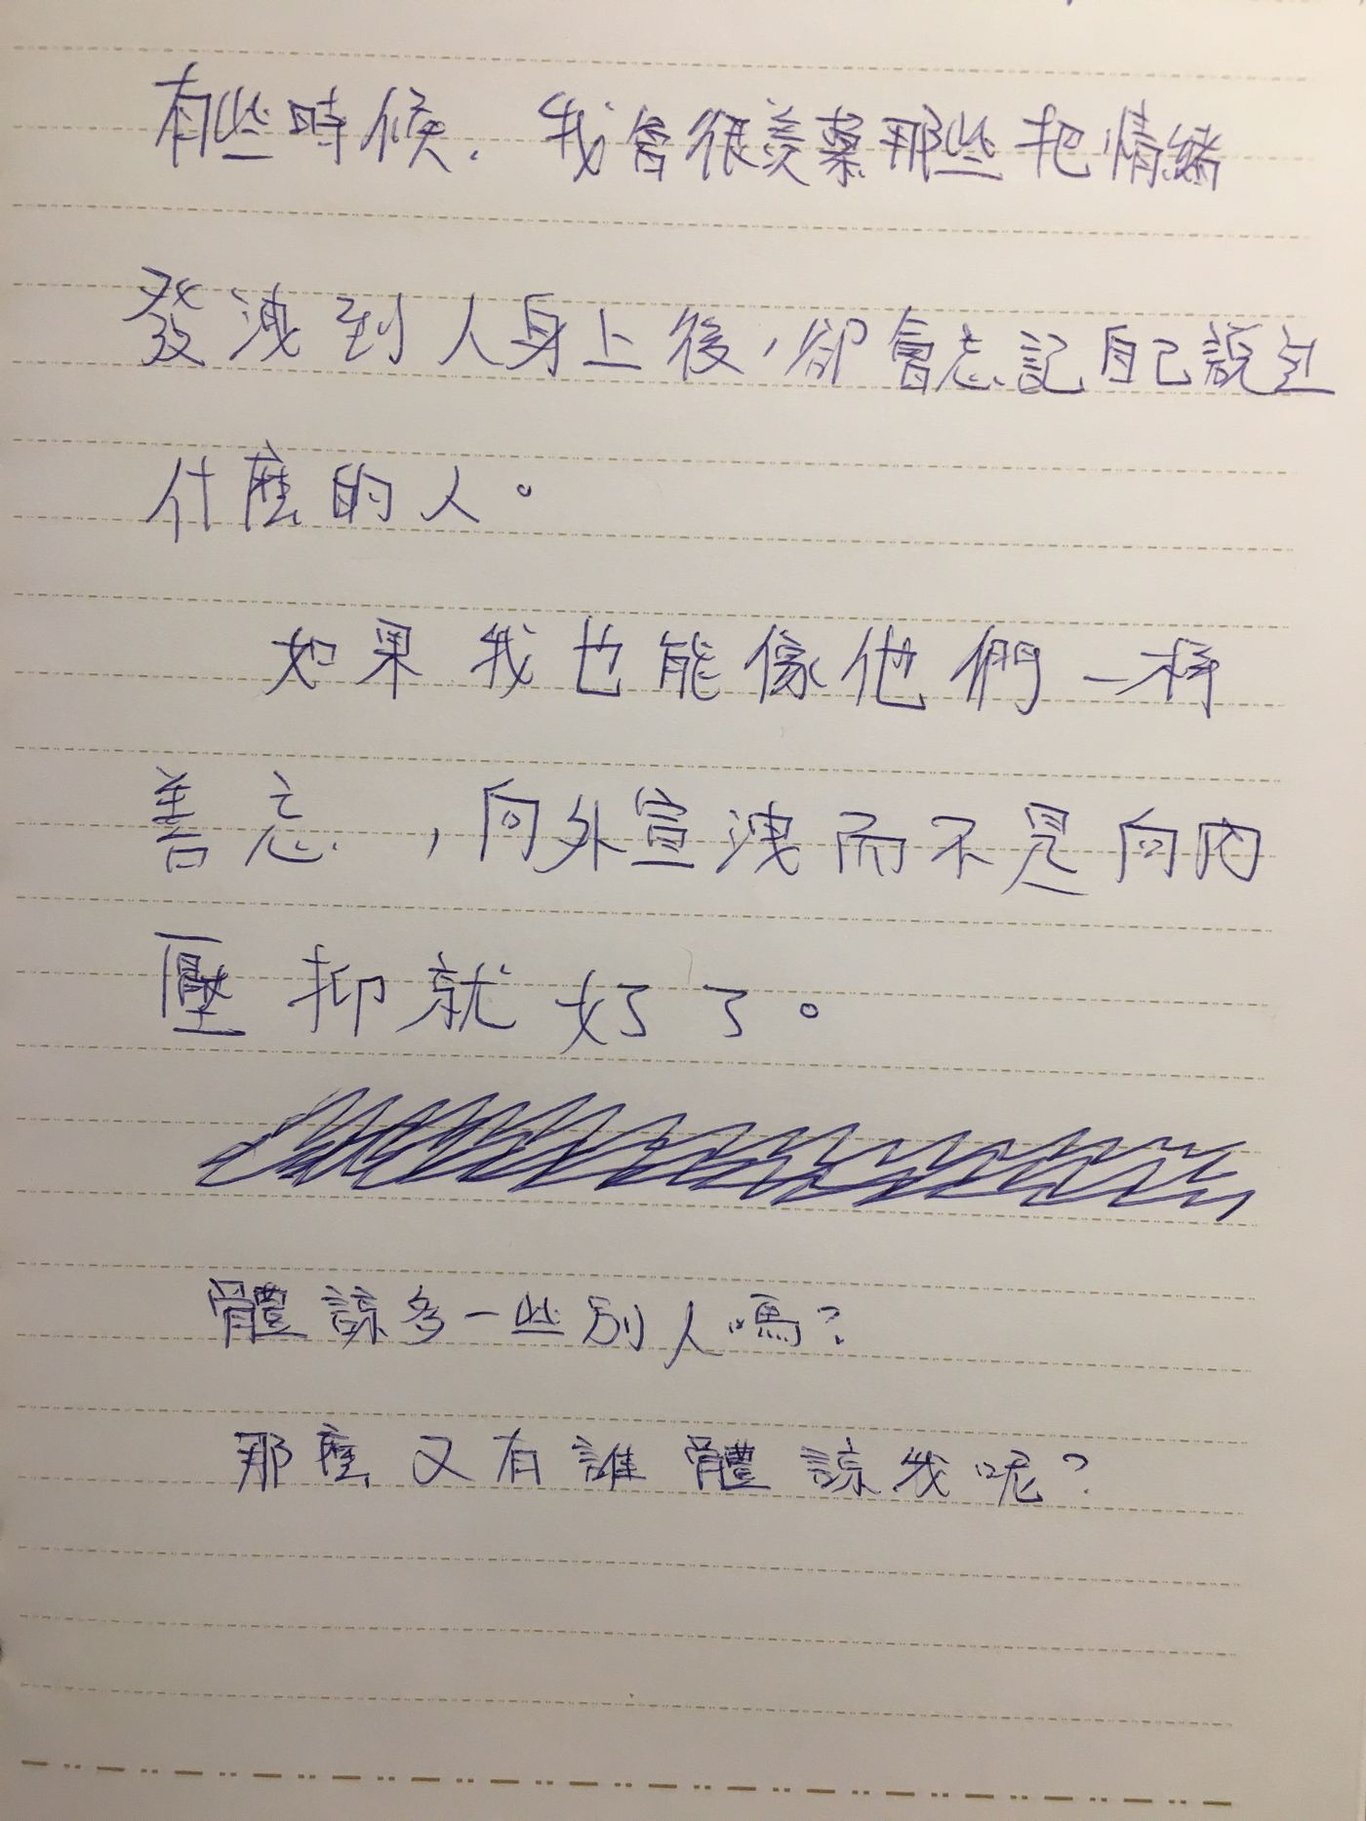 有些時候，我會很羨慕那些把情緒
發洩到人身上後，卻會忘記自己說過
什麼的人。
如果我也能像他們一样
善忘，向外宣洩而不是向內
壓抑就好了。
體諒多一些別人嗎？
那麼又有誰體諒我呢？